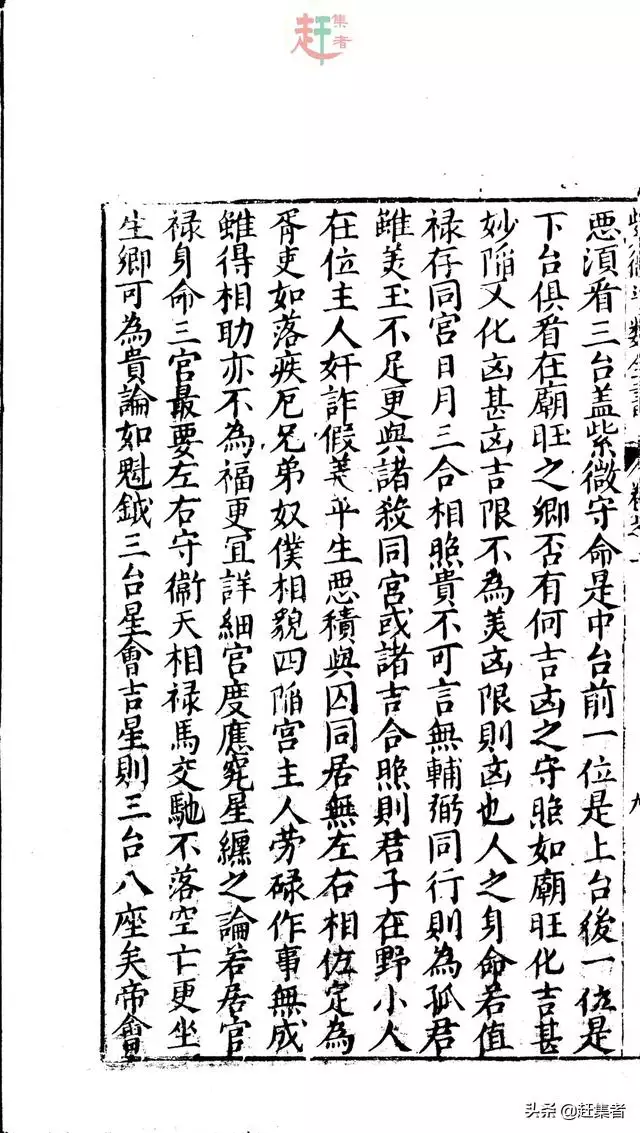 赶集者
惡湏看三台盖紫微守命是中台前一位是上台後一位是
下台俱看在廟旺之鄉否有何吉凶之守照如廟旺化吉甚
妙陷又化凶甚凶吉限不為美凶限則凶也人之身命若值
禄存同宫日月三合相照貴不可言無輔弼同行則為孤君
雖美玉不足更與諸殺同宫或諸吉合照則君子在野小人
在位主人奸詐假善平生惡積與囚同居無左右相佐定為
胥吏如落疾厄兄弟奴僕相貌四陷宫主人劳碌作事無成
雖得相助亦不為福更宜詳細宫度應究星纏之論若居官
禄身命三宫最要左右守衛天相禄馬交馳不落空亡更坐
生鄉可為貴論如魁鉞三台星會吉星則三台八座矣帝會
頭条 @赶集者